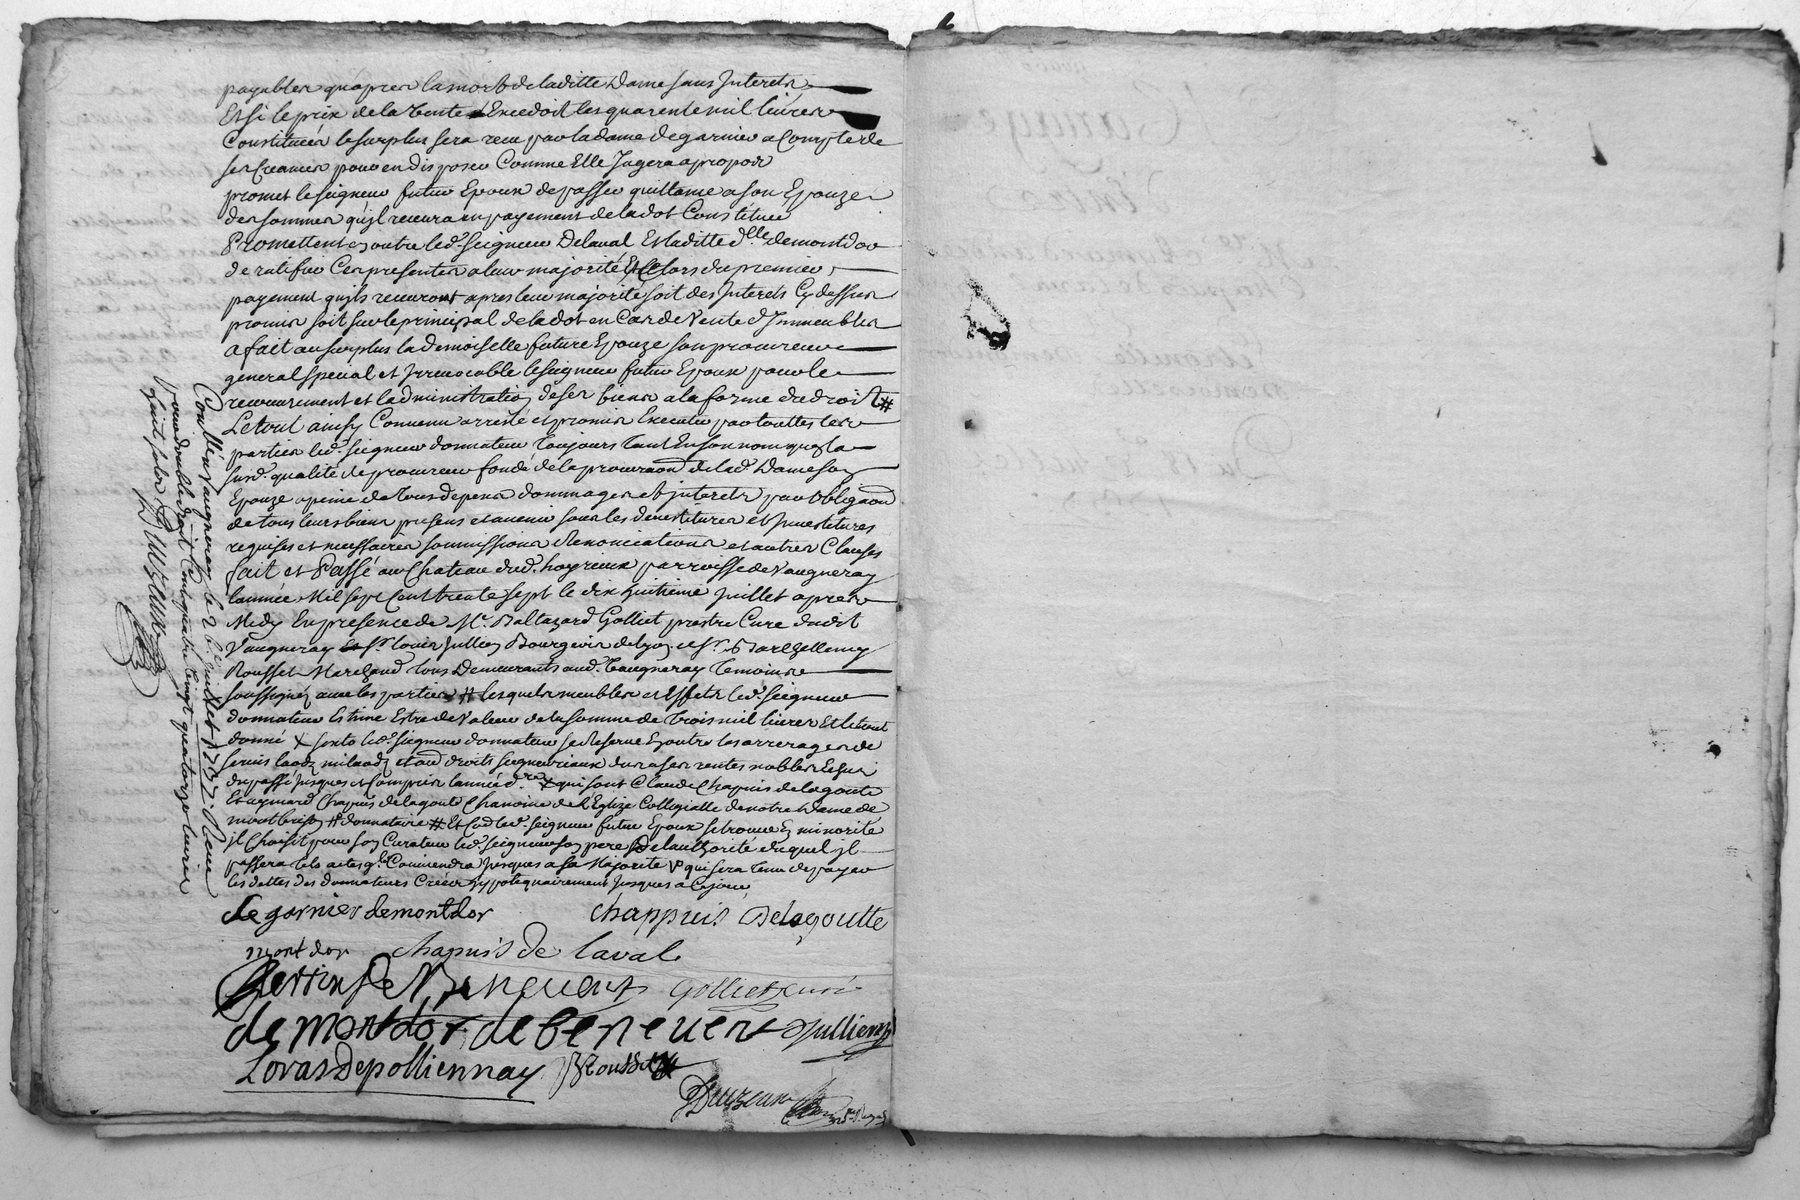 payables qu'apres la mort de laditte Dame sans Interets
Et si le prix de la Vente Excedoit les quarente mil livres
Constituées le surplus sera receu par la dame de garnier a Compte de
ses Creances pour en disposer Comme Elle Jugera apropos
promet le seigneur futur Epoux de passer quittance a son Epouze
des sommes qu'jl recevra en payement de la dot Constituée
Promettent en outre led. seigneur Delaval Et laditte dlle demontdor
de ratifier Ces presentes a leur majorité Et lors du premier
payement qu'jls recevront apres leur majorité soit des Interets Cy dessus
promis soit sur le principal de la dot en Cas de Vente d'Immeubles
a fait au surplus la demoiselle future Epouze son procureur
general special et Irrevocable le seigneur futur Epoux pour le
recouvrement et ladministration de ses biens a la forme du droit #
Le tout ainsy Convenu arresté et promis Executer par touttes les
parties led. seigneur donnateur toujours tant En son nom qu'en la
susd. qualité de procureur fondé de la procuraon de lad. Dame son
Epouze a peine de tous depens dommages et interets par obligaon
de tous leurs biens presens et avenir sous les devestitures et Jnvestitures
requises et necessaires soumissions Renonciations et autres Clauses
fait et Passé au Chateau dud. hoyrieux parroisse de Vaugneray
lannée Mil sept Cent trente sept le dix huitieme juillet apres
Midy En presence de Mr. Baltazard Golliet prestre Curé dudit
Vaugneray Sr. louis Jullien Bourgeois de lyon et Sr. Barthellemy
Rousset Marchand tous Demeurants aud. Vaugneray Temoins
soussignéz avec les parties # lesquels meubles et Effets led. seigneur
donnateur Estime Estre de Valeur de la somme de Trois mil livres Et le tout
donné X sexto led. seigneur donnateur se Reserve En outre les arrerages de
servis laods milaods et aud. droits seigneuriaux dus a ses rentes nobles
du passé Jusques et Compris lannée X qui sont Claude Chapuis de lagoutte
Et aymard Chapuis de lagoutte Chanoine de l'Eglize Collegialle de notre Dame de
montbrison # donnataire # Et led. seigneur futur Epoux se trouve En minorité
jl Choisit pour son Curateur led. seigneur son pere de lauthorité duquel jl
passera tels actes qu'il Conviendra Jusques a sa Majorité qui sera tenu de payer
les dettes des donnateurs Créées hypotequairement Jusques a Ce jour
de garnier demontdor chappuis Delagoutte
mont dor chapuis de laval
Benevent golliet curé
de montdor de benevent Jullien
Loras Depolliennay Rousset
Duzeau
Conllé a Vaugneray le juillet 1737. Receu
pour double droit Cent quatre Vingt quatorze livres